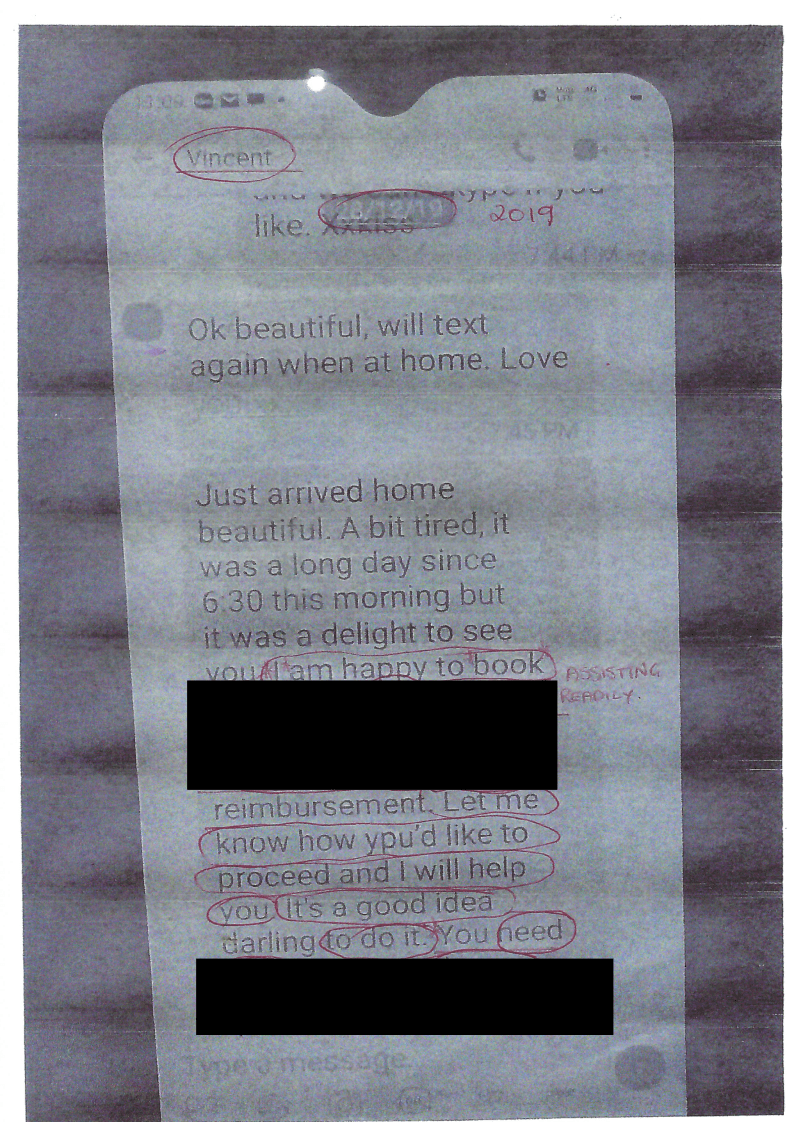 13:09
Vincent
like. Xxkiss
2019
7:44 PM
Ok beautiful, will text
again when at home. Love
7:45 PM
Just arrived home
beautiful. A bit tired, it
was a long day since
6:30 this morning but
it was a delight to see
you I am happy to book
ASSISTING
READILY.
reimbursement. Let me
know how ypu'd like to
proceed and I will help
you It's a good idea
darling to do it. You need
Type a message